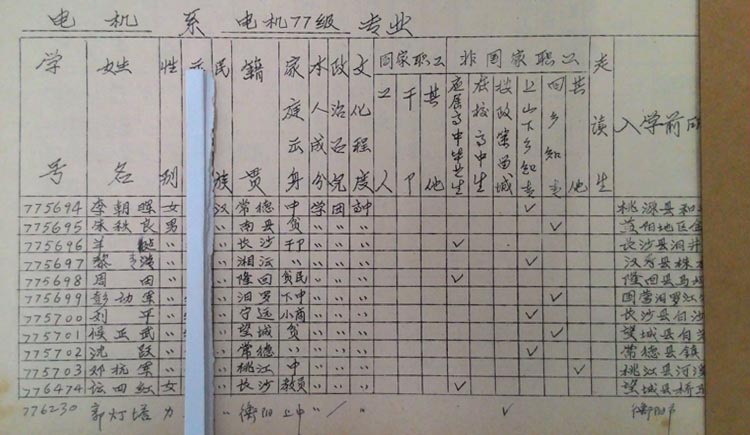 电机 系 电机77级 专业
学号 姓名 性别 民族 籍贯 家庭出身 本人成分 政治面貌 文化程度 国家职工 非国家职工 走读生 入学前
工人 干部 其他 应届高中毕业生 在校高中生 按政策留城 上山下乡知青 回乡知青 其他
775694 李朝晖 女 汉 常德 中 学 团 高中 ✓ 桃源县和
775695 宋秩良 男 〃 南县 贫 〃 〃 〃 ✓ 益阳地区
775696 羊 〃 〃 长沙 干 〃 〃 〃 ✓ 长沙县洞井
775697 黎 〃 〃 湘沄 〃 〃 〃 〃 ✓ 汉寿县株木
775698 周田 〃 〃 隆回 贫民 〃 〃 〃 ✓ 隆回县马坪
775699 彭劲军 〃 〃 汨罗 下中 〃 〃 〃 ✓ 国营汨罗江
775700 刘平 〃 〃 宁远 小商 〃 〃 〃 ✓ 长沙县白沙
775701 候正武 〃 〃 望城 贫 〃 〃 〃 ✓ 望城县白
775702 沈跃 〃 〃 常德 〃 〃 〃 〃 ✓ 常德县镇
775703 邓杭军 〃 〃 桃江 中 〃 〃 〃 ✓ 桃江县河
776474 坛四红 女 〃 长沙 教员 〃 〃 〃 ✓ 望城县桥
776230 郭灯塔 〃 衡阳 上中 〃 〃 ✓ 衡阳市